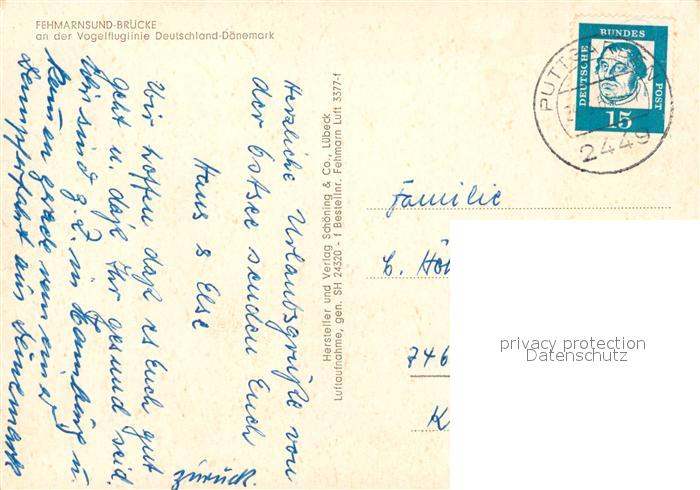 FEHMARNSUND-BRÜCKE
an der Vogelfluglinie Deutschland-Dänemark
Herzliche Urlaubsgrüße von
der Ostsee senden Euch
Hans & Else
Wir hoffen daß es Euch gut
geht u. daß Ihr gesund seid.
Wir sind z. Z. in Hamburg u.
kamen grade von einer
Dampferfahrt aus Dänemark
zurück.
Hersteller und Verlag Schöning & Co., Lübeck
Luftaufnahme, gen. SH 24320 - 1 Bestellnr. Fehmarn Luft 3377-f
DEUTSCHE BUNDESPOST
15
2449
Familie
b. Hö
746
K
privacy protection
Datenschutz